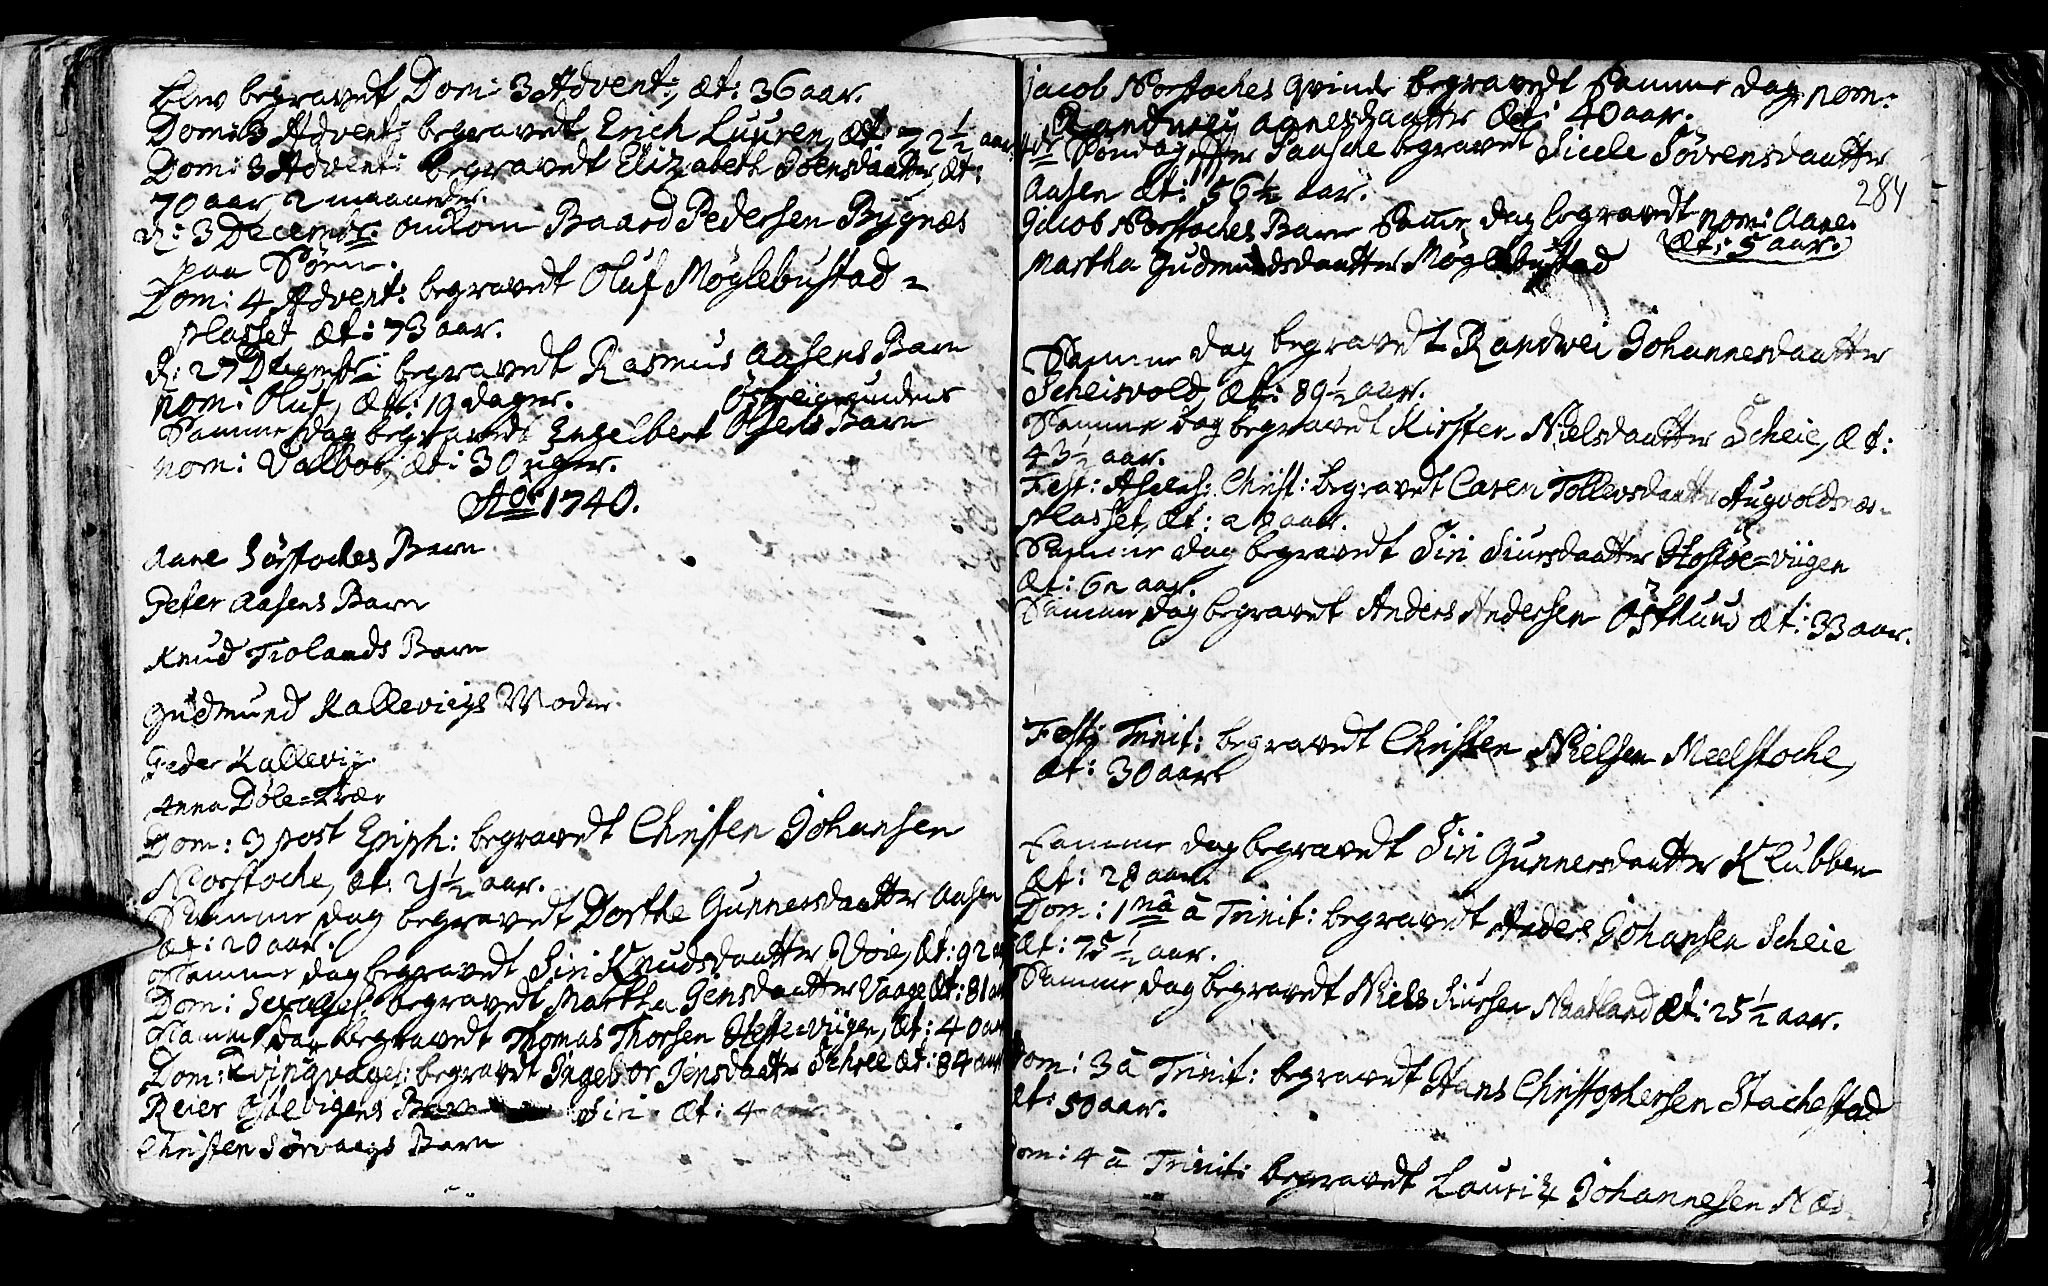 blev begravedt Dom: 3 Advent:, æt: 36 aar.
Dom: 3 Advent: begravedt Erich Luuren, æt: 72½ aar.
Dom: 3 Advent: begravedt Elizabeth Joensdaatter, æt:
70 aar, 2 maaneder.
d: 3 Decembr: omkom Baard Pedersen Bygnæs
paa Søen.
Dom: 4 Advent: begravedt Oluf Møglebustad-
plasset æt: 73 aar.
d: 27 Decembr: begravedt Rasmus Aasens Barn
nom: Oluf, æt: 19 dager.
Samme dag begravedt Engelbert Olsens Barn
nom: Valbor, æt: 30 uger.
Ao 1740.
Aane Sørstoches Barn
Peter Aasens Barn
Knud Tiolands Barn
Gudmund Kallevigs Moder.
Peder Kallevig.
Anna Døle-Tvær
Dom: 3 post Epiph: begravedt Christen Johansen
Norstoche, æt: 21½ aar.
Samme dag begravedt Dorthe Gunnersdaatter Aasen
æt: 20 aar.
Samme dag begravedt Siri Knudsdaatter Voie, æt: 92 a
Dom: Sexages: begravedt Martha Jensdaatter Vaage æt: 81 aar
Samme dag begravedt Thomas Thorsen Heste-viigen, æt: 40 aar
Dom: Qvinqvages: begravedt Ingebor Jensdaatter Schree æt: 84 aar
Reier Barn Siri æt: 4 aar
Christen Sørvaags Barn
Jacob Norstoches Qvinde begravedt Samme dag nom:
Randwei Agnesdaatter æt: 40 aar.
Søndag efter Paasche begravet Sicele Sørensdaatter
Aasen æt: 56½ aar.
284
Jacob Norstoches Barn Samme dag begravedt nom: Aane.
æt: 5 aar.
Martha Gudmundsdaatter Møglebustad
Samme dag begravedt Randwei Johannesdaatter
Scheisvold, æt: 89½ aar.
Samme dag begravedt Kirsten Nielsdaatter Scheie, æt:
43½ aar.
Fest: Ascens: Christ: begravedt Caren Tollevsdaatter Augvoldsnæs-
plasset, æt: aar.
Samme dag begravedt Siri Siursdaatter -viigen
æt: 62 aar.
Samme dag begravedt Anders Andersen Østhuus æt: 33 aar.
Fest: Trinit: begravedt Christen Nielsen Meelstoche,
æt: 30 aar.
Samme dag begravedt Siri Gunnersdaatter Klubben
æt: 28 aar.
Dom: 1ma a Trinit: begravedt Anders Johansen Scheie
æt: 75½ aar.
Samme dag begravedt Niels Siursen æt: 25½ aar.
Dom: 3 a Trinit: begravedt Hans Christophersen Stachestad
æt: 50 aar.
Dom: 4 a Trinit: begravedt Lauritz Johannesen Næs